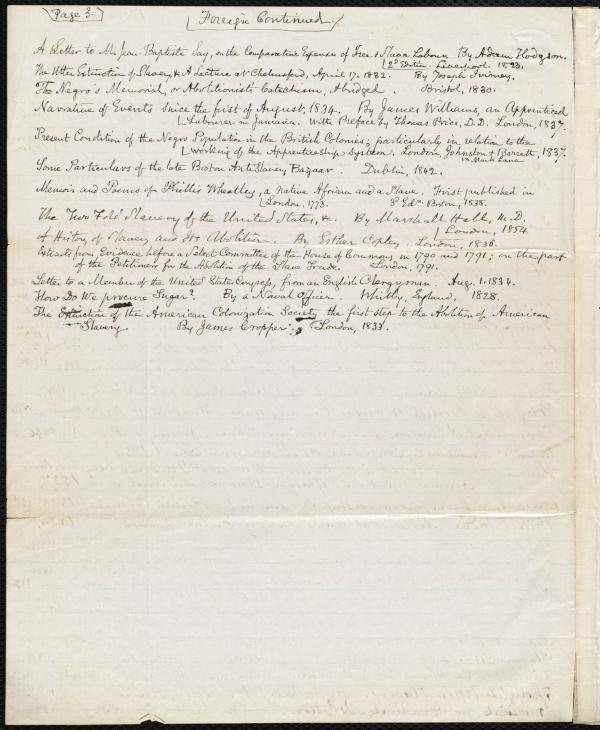 Page 3.
Foreign Continued
A Letter to M. Jean-Baptiste Say, on the Comparative Expense of Free & Slave Labour. By Adam Hodgson.
2d Edition. Liverpool. 1823.
The Utter Extinction of Slavery, &c A Lecture at Chelmsford, April 17. 1832. By Joseph Ivimey.
The Negro's Memorial, or Abolitionist's Catechism, Abridged. Bristol, 1830.
Narrative of Events since the first of August, 1834. By James Williams, an Apprenticed
Labourer in Jamaica. With Preface by Thomas Price, D.D. London, 1837.
Present Condition of the Negro Population in the British Colonies; particularly in relation to the
working of the Apprenticeship System. London. Johnston & Barrett, 1837.
13 Mark Lane
Some Particulars of the late Boston Anti Slavery Bazaar. Dublin, 1842.
Memoir and Poems of Phillis Wheatley, a native African and a Slave. First published in
London, 1773. 3d Edn. Boston, 1838.
The Two Fold Slavery of the United States, &c. By Marshall Hall, M.D.
London, 1854.
A History of Slavery and its Abolition. By Esther Copley. London, 1836.
Extracts from Evidence before a Select Committee of the House of Commons, in 1790 and 1791; on the part
of the Petitioners for the Abolition of the Slave Trade. London, 1791.
Letter to a Member of the United States Congress, from an English Clergyman. Aug. 1. 1834.
How Do We procure Sugar? By a Naval Officer. Whitby, England, 1828.
The Extinction of the American Colonization Society the first step to the Abolition of American
Slavery. By James Cropper. London, 1833.